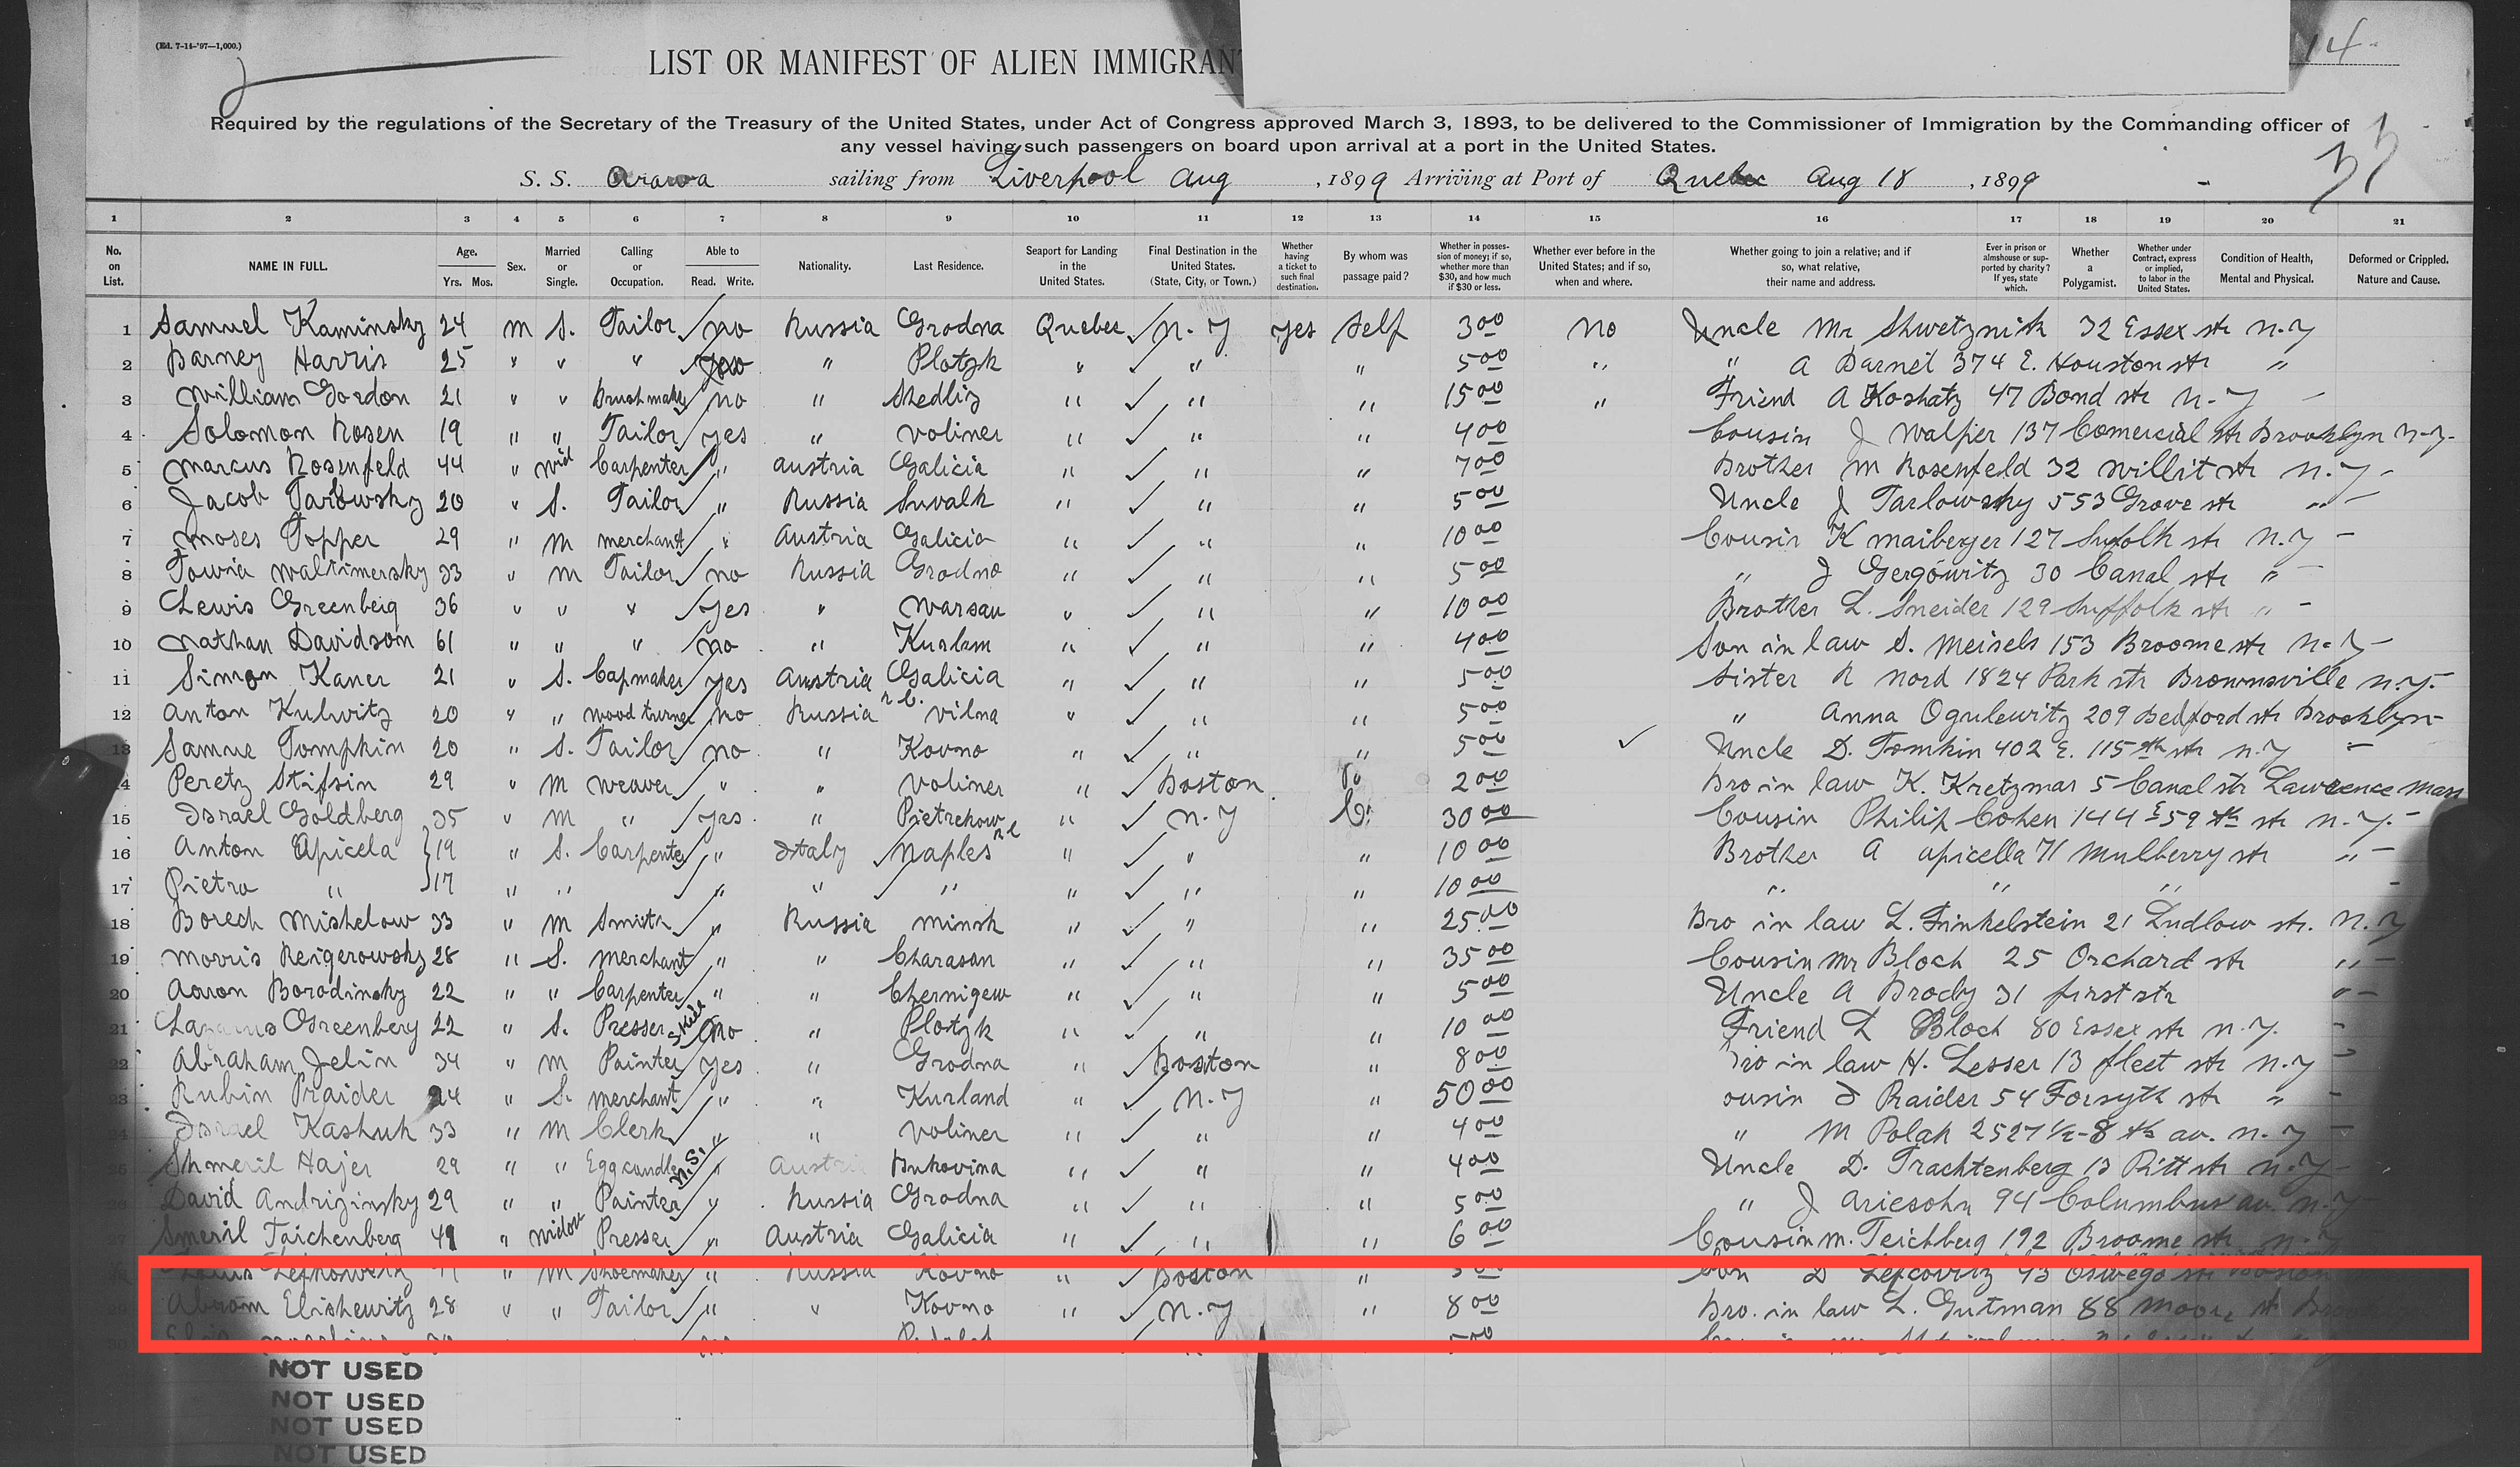 (Ed. 7-14-'97—1,000.)
LIST OR MANIFEST OF ALIEN IMMIGRANT
14
Required by the regulations of the Secretary of the Treasury of the United States, under Act of Congress approved March 3, 1893, to be delivered to the Commissioner of Immigration by the Commanding officer of
any vessel having such passengers on board upon arrival at a port in the United States.
33
S. S. Arawa sailing from Liverpool Aug , 1899 Arriving at Port of Quebec Aug 18 , 1899
1 2 3 4 5 6 7 8 9 10 11 12 13 14 15 16 17 18 19 20 21
No. on List. NAME IN FULL. Age. Yrs. Mos. Sex. Married or Single. Calling or Occupation. Able to Read. Write. Nationality. Last Residence. Seaport for Landing in the United States. Final Destination in the United States. (State, City, or Town.) Whether having a ticket to such final destination. By whom was passage paid? Whether in possession of money; if so, whether more than $30, and how much if $30 or less. Whether ever before in the United States; and if so, when and where. Whether going to join a relative; and if so, what relative, their name and address. Ever in prison or almshouse or supported by charity? If yes, state which. Whether a Polygamist. Whether under Contract, express or implied, to labor in the United States. Condition of Health, Mental and Physical. Deformed or Crippled. Nature and Cause.
1 Samuel Kaminsky 24 m S. Tailor no Russia Grodna Quebec N.Y yes Self 3 00 no Uncle Mr Shwetznik 32 Essex str N.Y
2 Barney Harris 25 " " " " Plotzk " " " 5 00 " " A Barnet 374 E. Houston str "
3 William Gordon 21 " " Brushmaker no " Shedliz " " " 15 00 " Friend A Koshatz 47 Bond str N.Y
4 Solomon Rosen 19 " " Tailor yes " Voliner " " " 4 00 Cousin J Walper 137 Comercial str Brooklyn N.Y.
5 Marcus Rosenfeld 44 " wid Carpenter " Austria Galicia " " " 7 00 Brother M Rosenfeld 32 Willit str N.Y
6 Jacob Tarlowsky 20 " S. Tailor " Russia Suvalk " " " 5 00 Uncle J Tarlowsky 553 Grove str "
7 Moses Topper 29 " M merchant " Austria Galicia " " " 10 00 Cousin K Maiberger 127 Suffolk str N.Y
8 Towia Waltimersky 33 " M Tailor no Russia Grodno " " " 5 00 " J Gergowitz 30 Canal str "
9 Lewis Greenberg 36 " " " yes " Warsau " " " 10 00 Brother L. Sneider 129 Suffolk str "
10 Nathan Davidson 61 " " " no " Kurlam " " " 4 00 Son in law S. Meisels 153 Broome str N.Y
11 Simon Kaner 21 " S. Capmaker yes Austria Galicia " " " 5 00 Sister R Nord 1824 Park str Brownsville N.Y.
12 Anton Kulwitz 20 " " wood turner no Russia Vilna " " " 5 00 " Anna Ogulewitz 209 Bedford str Brooklyn
13 Samue Tompkin 20 " S. Tailor no " Kovno " " " 5 00 Uncle D. Tomkin 402 E. 115th str N.Y
14 Peretz Stifsin 29 " M weaver " " Voliner " Boston 2 00 Bro in law K. Kretzmar 5 Canal str Lawrence Mass
15 Israel Goldberg 35 " M " yes " Pietrekow " N.Y 30 00 Cousin Philip Cohen 144 E 59th str N.Y.
16 Anton Apicela 19 " S. Carpenter " Italy Naples " " " 10 00 Brother A Apicella 71 Mulberry str "
17 Pietro " 17 " " " " " " " " 10 00 " " "
18 Borech Mishelow 33 " M Smith " Russia Minsk " " " 25 00 Bro in law L. Finkelstein 21 Ludlow str. N.Y
19 Morris Reigerowsky 28 " S. merchant " " Charasan " " " 35 00 Cousin Mr Bloch 25 Orchard str "
20 Aaron Borodinsky 22 " " Carpenter " " Chernigew " " " 5 00 Uncle A Brody 31 first str "
21 Lazarus Greenberg 22 " S. Presser no " Plotzk " " " 10 00 Friend L Bloch 80 Essex str N.Y.
22 Abraham Jelin 34 " M Painter yes " Grodna " Boston " 8 00 Bro in law H. Lesser 13 fleet str N.Y
23 Rubin Praider 24 " S. merchant " " Kurland " N.Y " 50 00 ousin J Raider 54 Forsyth str "
24 Israel Kashuk 33 " M Clerk " " Voliner " " " 4 00 " M Polak 2527 1/2-8th av. N.Y
25 Shmeril Hajer 29 " " Egg candler " Austria Bukovina " " " 4 00 Uncle D. Trachtenberg 13 Pitt str N.Y
26 David Andrizinsky 29 " " Painter " Russia Grodna " " " 5 00 " J Ariesohn 94 Columbus av. N.Y
27 Smeril Taichenberg 49 " widow Presser " Austria Galicia " " " 6 00 Cousin M. Teichberg 192 Broome str N.Y
Louis Lefkowitz " M Shoemaker " Russia Kovno " Boston " Son D Lefcovitz 43 Oswego str Boston
29 Abrom Elishewitz 28 " " Tailor " " Kovno " N.Y " 8 00 Bro. in law L. Gutman 88 Moore st
30
NOT USED
NOT USED
NOT USED
NOT USED